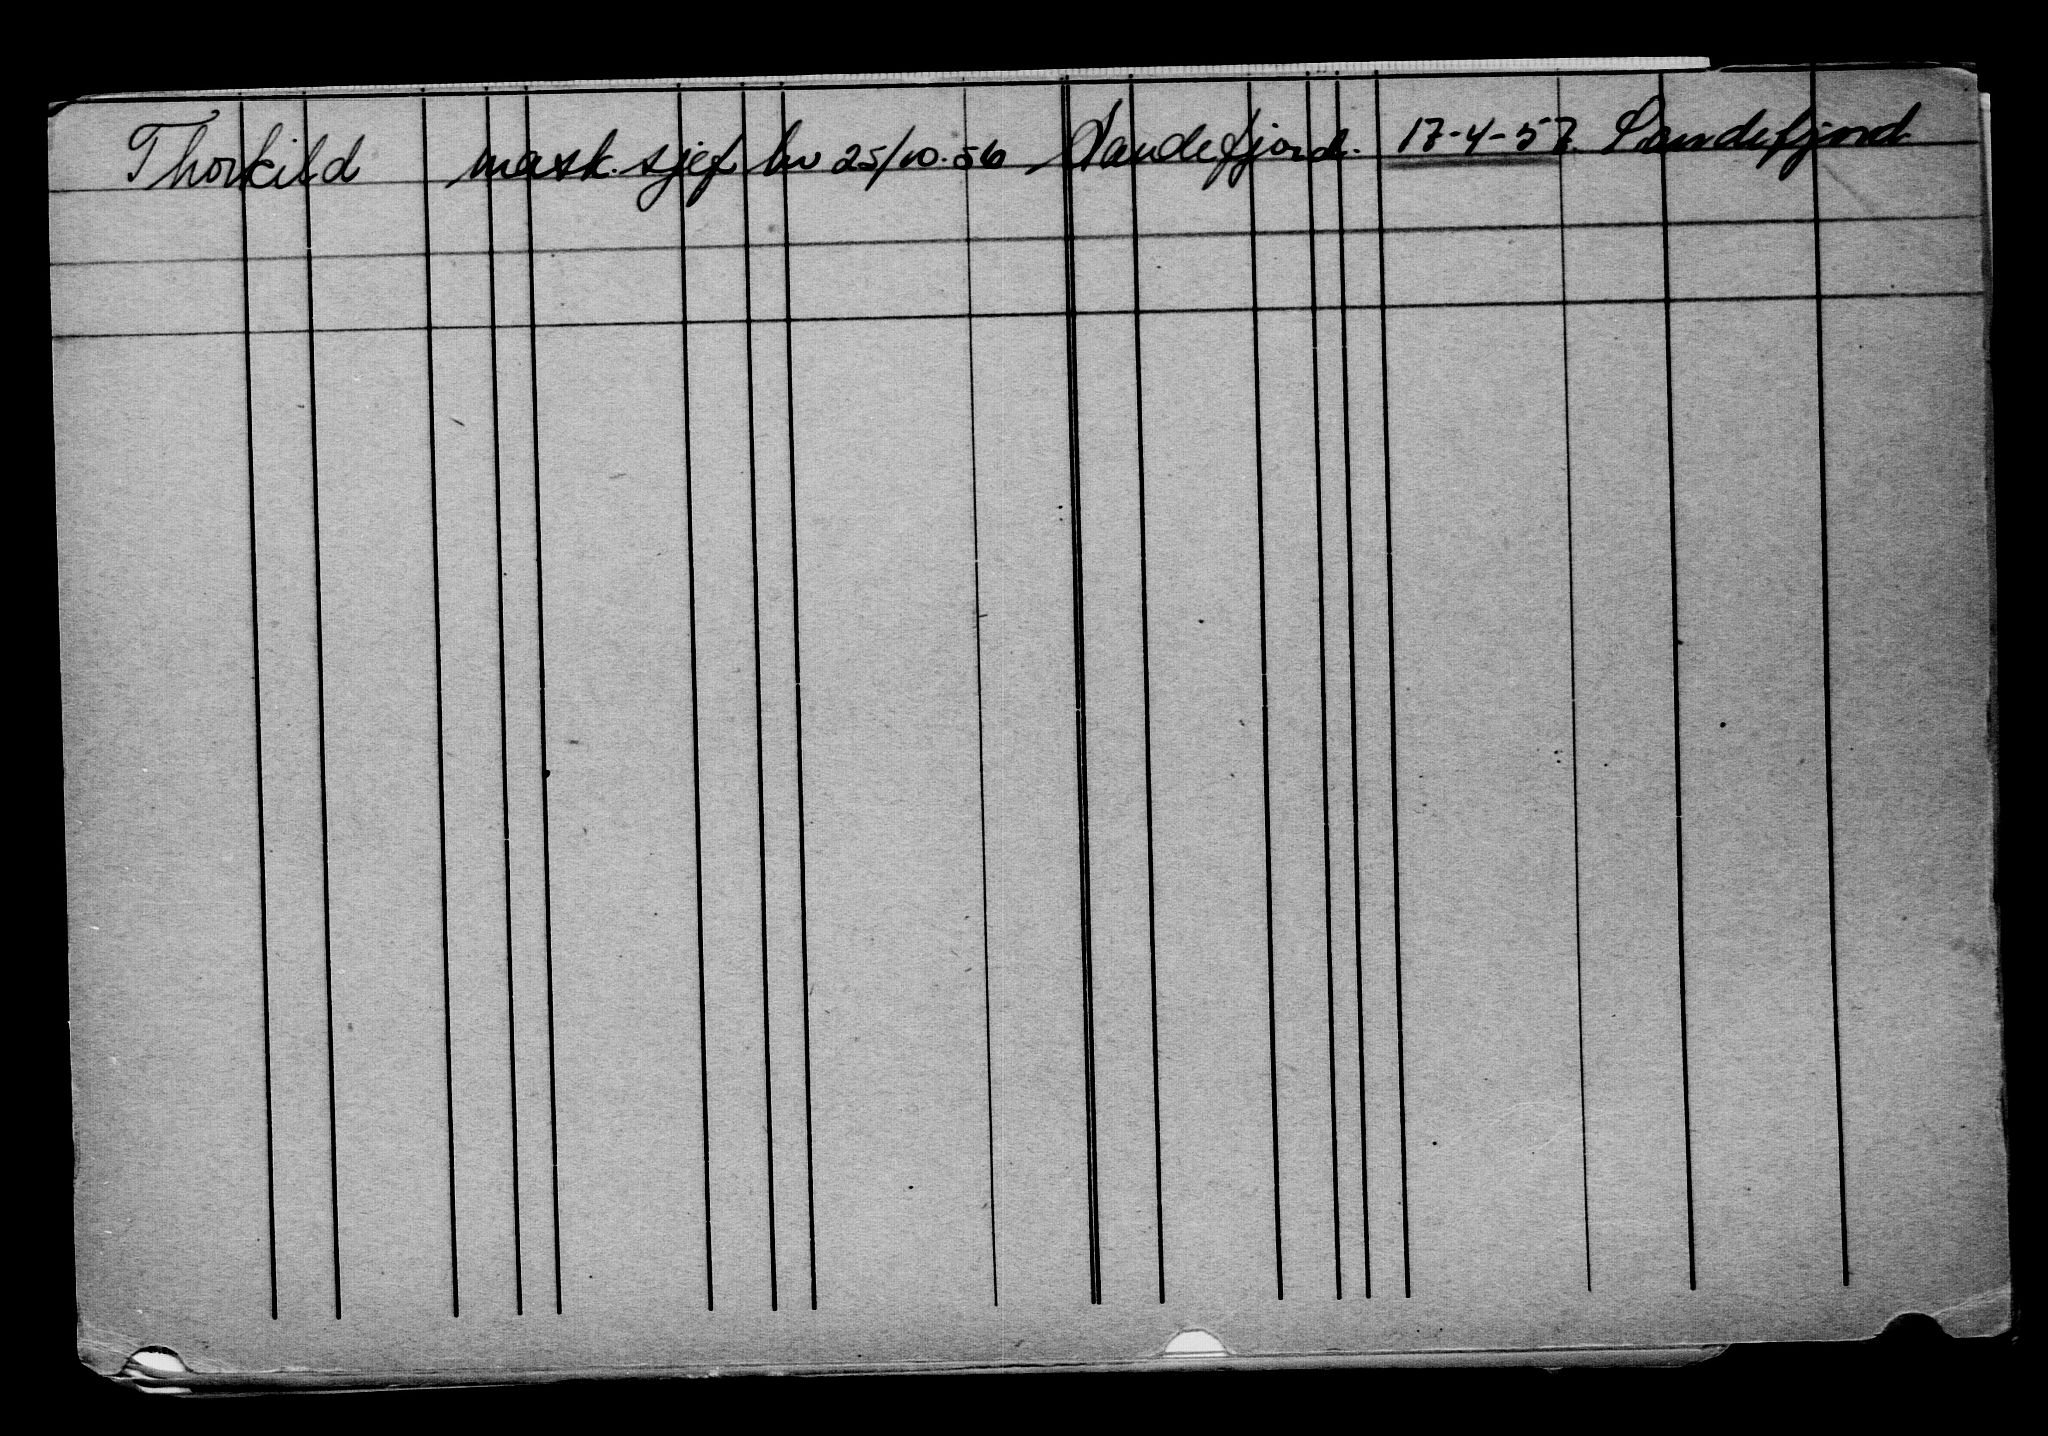 Thorkild mask. sjef hv 25/10.56 Sandefjord. 17-4-57. Sandefjord